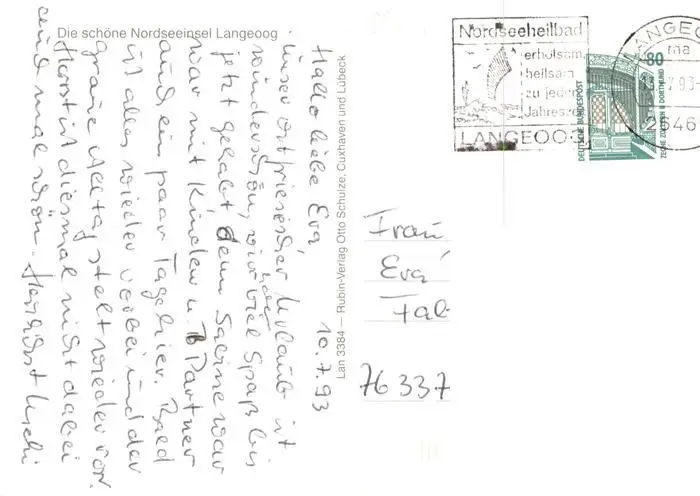 Die schöne Nordseeinsel Langeoog
10.7.93
Hallo liebe Eva,
unser ostfriesischer Urlaub ist
wunderschön, wir haben viel Spaß bis
jetzt gehabt, denn Sabine war
war mit Kindern u. Partner
auch ein paar Tage hier. Bald
ist alles wieder vorbei und der
graue Alltag steht wieder vor.
Horst ist diesmal nicht dabei
auch mal schön. Herzlichst Uschi
Lan 3384 — Rubin-Verlag Otto Schulze, Cuxhaven und Lübeck
Nordseeheilbad
erholsam
heilsam
zu jeder
Jahresze
LANGEOOG
LANGEO
80
DEUTSCHE BUNDESPOST
ZECHE ZOLLERN II DORTMUND
Frau
Eva
Fab
76337